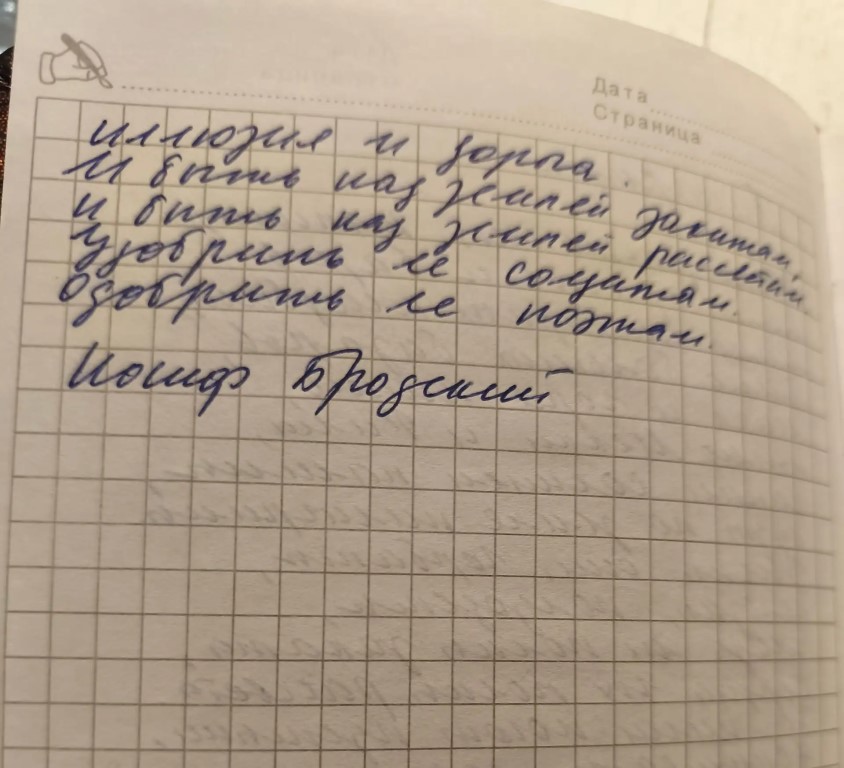 Дата
Страница
иллюзия и дорога.
И быть над землей закатам,
и быть над землей рассветам.
Удобрить ее солдатам.
Одобрить ее поэтам.
Иосиф Бродский